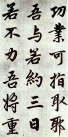 功業可指取歟
吾與若約三日
若不力吾將重